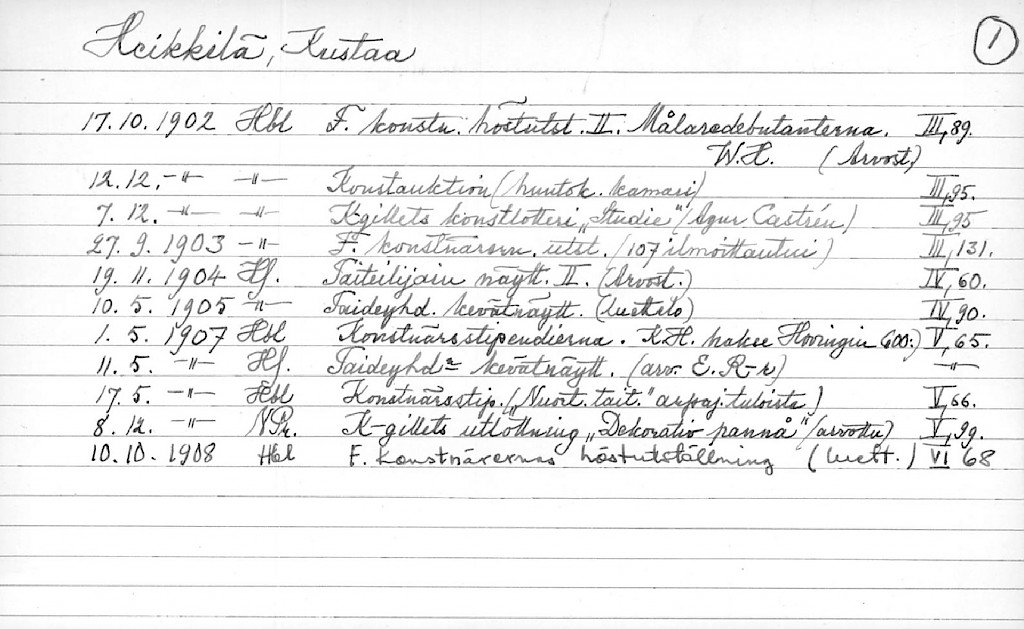 Heikkilä, Kustaa 1
17.10.1902 Hbl F. konstn. höstutst. II. Målaredebutanterna. III, 89.
W.H. (Arvost.)
12.12. -"- -"- Konstauktion (huutok. kamari) III, 95.
7. 12. -"- -"- K-gillets konstlotteri „Studie" (Agnr Castrén) III, 95
27. 9. 1903 -"- F. konstnärern. utst. (107 ilmoittautui) III, 131.
19. 11. 1904 Hf. Taiteilijain näytt. II. (Arvost.) IV, 60.
10. 5. 1905 -"- Taideyhd. kevätnäytt. (luettelo) IV, 90.
1. 5. 1907 Hbl Konstnärsstipendierna. K.H. hakee Hovingin 600:) V, 65.
11. 5. -"- Hf. Taideyhd= kevätnäytt. (arv. E. R-r) -"-
17. 5. -"- Hbl Konstnärsstip. („Nuort. tait." arpaj. tuloista) V, 66.
8. 12. -"- NPr. K-gillets utlottning „Dekorativ pannå" (arvottu) V, 99.
10. 10. 1908 Hbl F. Konstnärernas höstutställning (luett.) VI 68